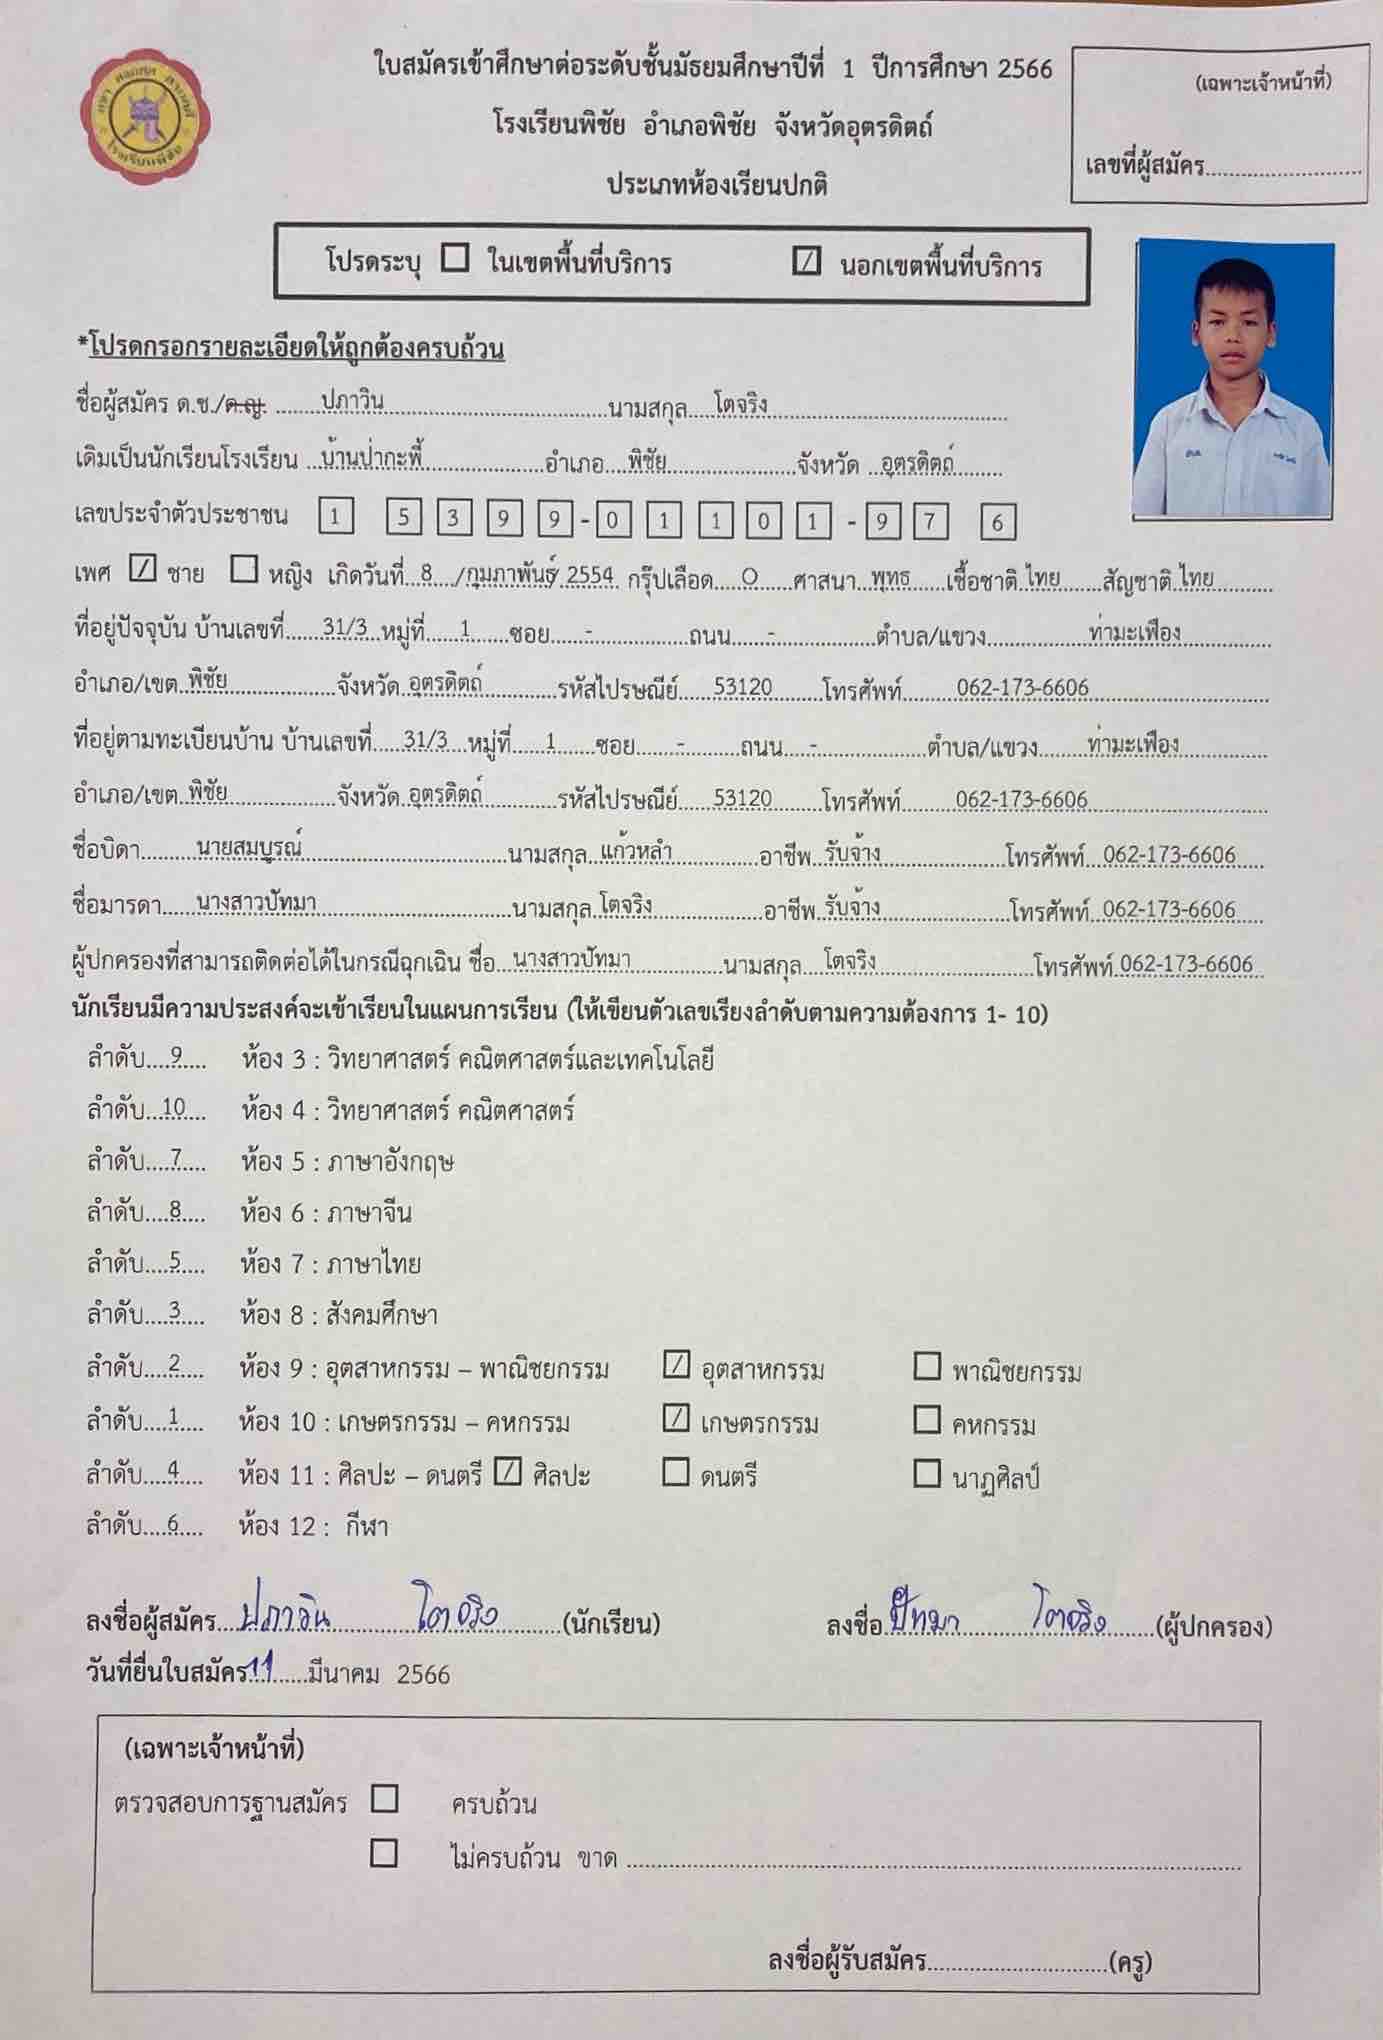 ใบสมัครเข้าศึกษาต่อระดับชั้นมัธยมศึกษาปีที่ 1 ปีการศึกษา 2566
(เฉพาะเจ้าหน้าที่)
โรงเรียนพิชัย อำเภอพิชัย จังหวัดอุตรดิตถ์
เลขที่ผู้สมัคร
ประเภทห้องเรียนปกติ
โรงเรียนพิชัย
โปรดระบุ ☐ ในเขตพื้นที่บริการ ☑ นอกเขตพื้นที่บริการ
*โปรดกรอกรายละเอียดให้ถูกต้องครบถ้วน
ชื่อผู้สมัคร ด.ช./ด.ญ. ปภาวิน นามสกุล โตจริง
เดิมเป็นนักเรียนโรงเรียน บ้านป่ากะพี้ อำเภอ พิชัย จังหวัด อุตรดิตถ์
เลขประจำตัวประชาชน 1 5 3 9 9 - 0 1 1 0 1 - 9 7 6
เพศ ☑ ชาย ☐ หญิง เกิดวันที่ 8 /กุมภาพันธ์/ 2554 กรุ๊ปเลือด O ศาสนา พุทธ เชื้อชาติ ไทย สัญชาติ ไทย
ที่อยู่ปัจจุบัน บ้านเลขที่ 31/3 หมู่ที่ 1 ซอย - ถนน - ตำบล/แขวง ท่ามะเฟือง
อำเภอ/เขต พิชัย จังหวัด อุตรดิตถ์ รหัสไปรษณีย์ 53120 โทรศัพท์ 062-173-6606
ที่อยู่ตามทะเบียนบ้าน บ้านเลขที่ 31/3 หมู่ที่ 1 ซอย - ถนน - ตำบล/แขวง ท่ามะเฟือง
อำเภอ/เขต พิชัย จังหวัด อุตรดิตถ์ รหัสไปรษณีย์ 53120 โทรศัพท์ 062-173-6606
ชื่อบิดา นายสมบูรณ์ นามสกุล แก้วหลำ อาชีพ รับจ้าง โทรศัพท์ 062-173-6606
ชื่อมารดา นางสาวปัทมา นามสกุล โตจริง อาชีพ รับจ้าง โทรศัพท์ 062-173-6606
ผู้ปกครองที่สามารถติดต่อได้ในกรณีฉุกเฉิน ชื่อ นางสาวปัทมา นามสกุล โตจริง โทรศัพท์ 062-173-6606
นักเรียนมีความประสงค์จะเข้าเรียนในแผนการเรียน (ให้เขียนตัวเลขเรียงลำดับตามความต้องการ 1- 10)
ลำดับ 9 ห้อง 3 : วิทยาศาสตร์ คณิตศาสตร์และเทคโนโลยี
ลำดับ 10 ห้อง 4 : วิทยาศาสตร์ คณิตศาสตร์
ลำดับ 7 ห้อง 5 : ภาษาอังกฤษ
ลำดับ 8 ห้อง 6 : ภาษาจีน
ลำดับ 5 ห้อง 7 : ภาษาไทย
ลำดับ 3 ห้อง 8 : สังคมศึกษา
ลำดับ 2 ห้อง 9 : อุตสาหกรรม – พาณิชยกรรม ☑ อุตสาหกรรม ☐ พาณิชยกรรม
ลำดับ 1 ห้อง 10 : เกษตรกรรม – คหกรรม ☑ เกษตรกรรม ☐ คหกรรม
ลำดับ 4 ห้อง 11 : ศิลปะ – ดนตรี ☑ ศิลปะ ☐ ดนตรี ☐ นาฏศิลป์
ลำดับ 6 ห้อง 12 : กีฬา
ลงชื่อผู้สมัคร ปภาวิน โตจริง (นักเรียน) ลงชื่อ ปัทมา โตจริง (ผู้ปกครอง)
วันที่ยื่นใบสมัคร 11 มีนาคม 2566
(เฉพาะเจ้าหน้าที่)
ตรวจสอบการฐานสมัคร ☐ ครบถ้วน
☐ ไม่ครบถ้วน ขาด
ลงชื่อผู้รับสมัคร (ครู)